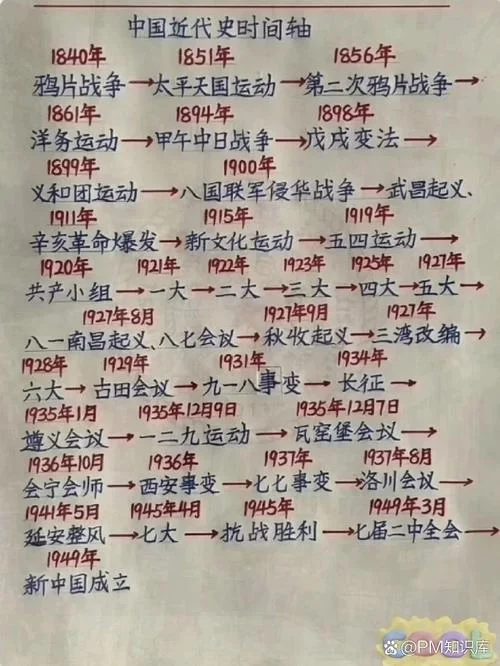 中国近代史时间轴
1840年 1851年 1856年
鸦片战争→太平天国运动→第二次鸦片战争→
1861年 1894年 1898年
洋务运动→甲午中日战争→戊戌变法→
1899年 1900年
义和团运动→八国联军侵华战争→武昌起义、
1911年 1915年 1919年
辛亥革命爆发→新文化运动→五四运动→
1920年 1921年 1922年 1923年 1925年 1927年
共产小组→一大→二大→三大→四大→五大→
1927年8月 1927年9月 1927年
八一南昌起义、八七会议→秋收起义→三湾改编→
1928年 1929年 1931年 1934年
六大→古田会议→九一八事变→长征→
1935年1月 1935年12月9日 1935年12月7日
遵义会议→一二九运动→瓦窑堡会议→
1936年10月 1936年 1937年 1937年8月
会宁会师→西安事变→七七事变→洛川会议→
1941年5月 1945年4月 1945年 1949年3月
延安整风→七大→抗战胜利→七届二中全会→
1949年
新中国成立
@PM知识库